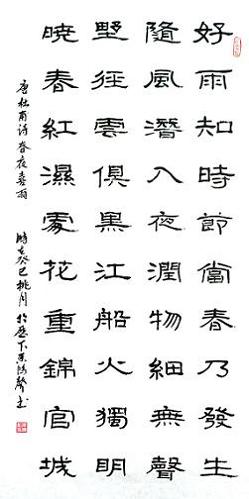 好雨知時節當春乃發生
隨風潛入夜潤物細無聲
野径雲俱黑江船火獨明
曉看紅濕處花重錦官城
唐杜甫诗春夜喜雨
時在癸巳桃月於歷下